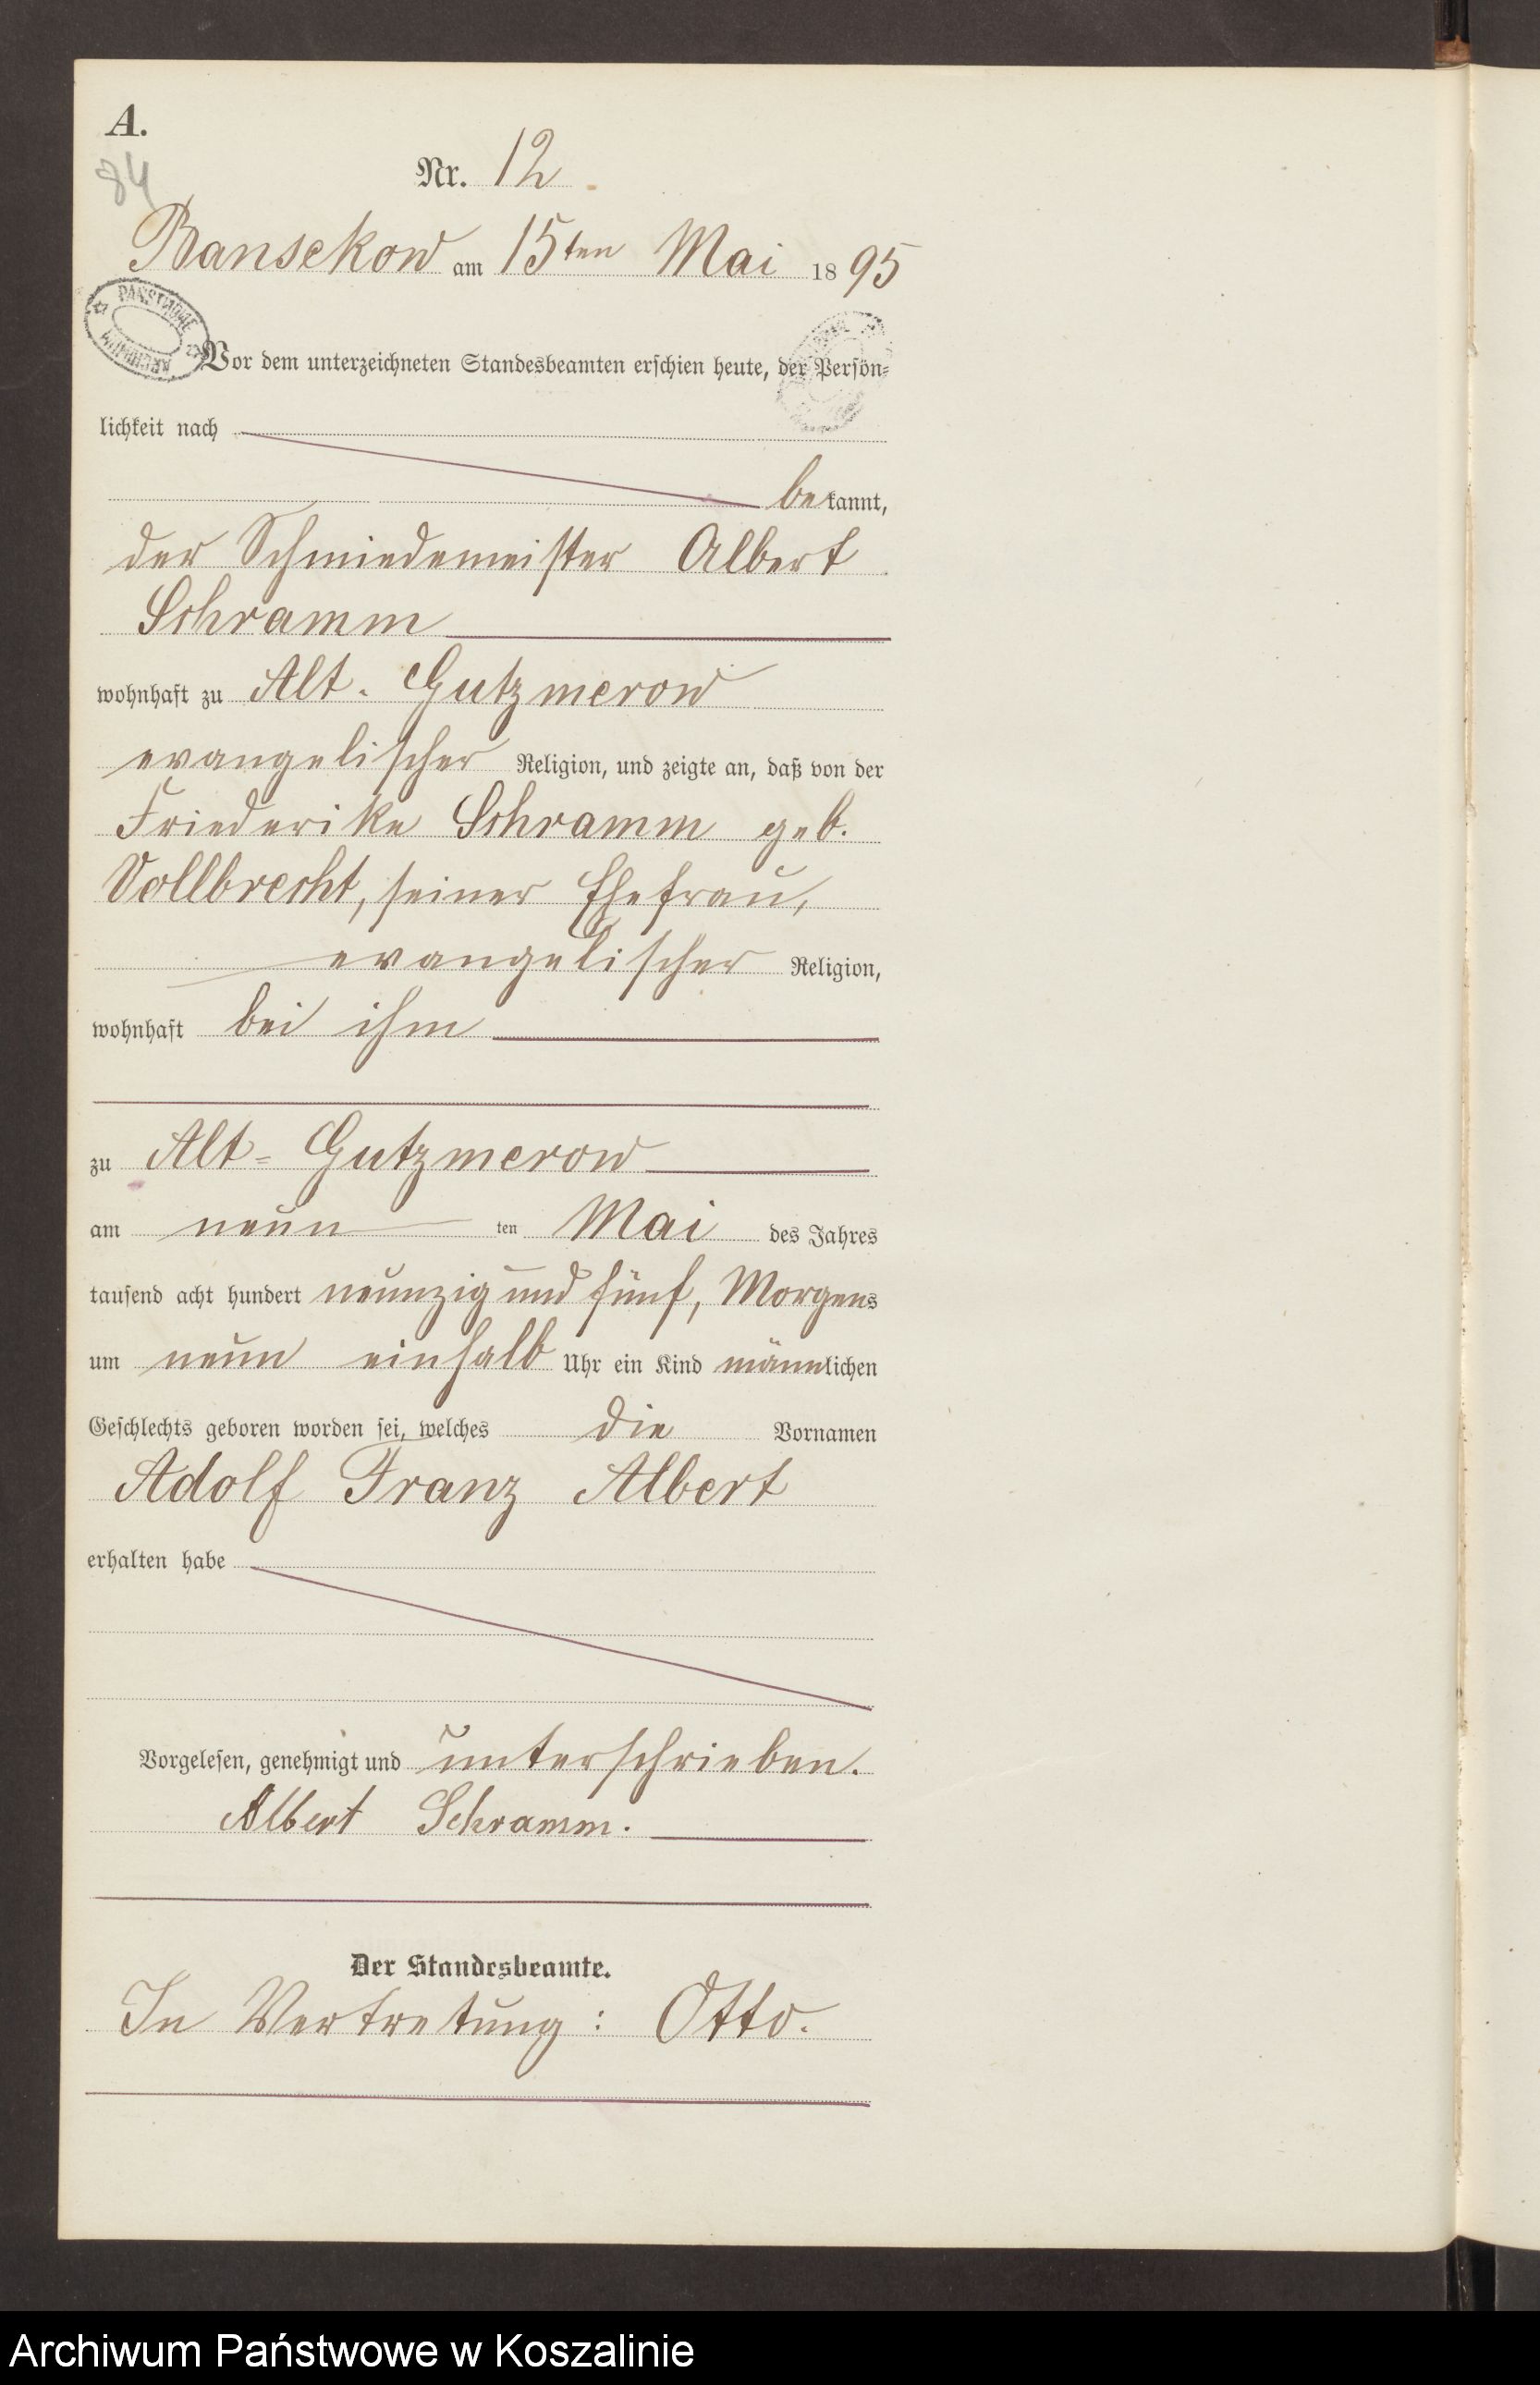 A.
84
Nr. 12
Bansekow am 15ten Mai 1895
PAŃSTWOWE
ARCHIWUM
Vor dem unterzeichneten Standesbeamten erschien heute, der Persön-
lichkeit nach
bekannt,
der Schmiedemeister Albert
Schramm
wohnhaft zu Alt-Gutzmerow
evangelischer Religion, und zeigte an, daß von der
Friederike Schramm geb.
Vollbrecht, seiner Ehefrau,
evangelischer Religion,
wohnhaft bei ihm
zu Alt-Gutzmerow
am neun ten Mai des Jahres
tausend acht hundert neunzig und fünf, Morgens
um neun einhalb Uhr ein Kind männlichen
Geschlechts geboren worden sei, welches die Vornamen
Adolf Franz Albert
erhalten habe
Vorgelesen, genehmigt und unterschrieben.
Albert Schramm.
Der Standesbeamte.
In Vertretung: Otto.
Archiwum Państwowe w Koszalinie